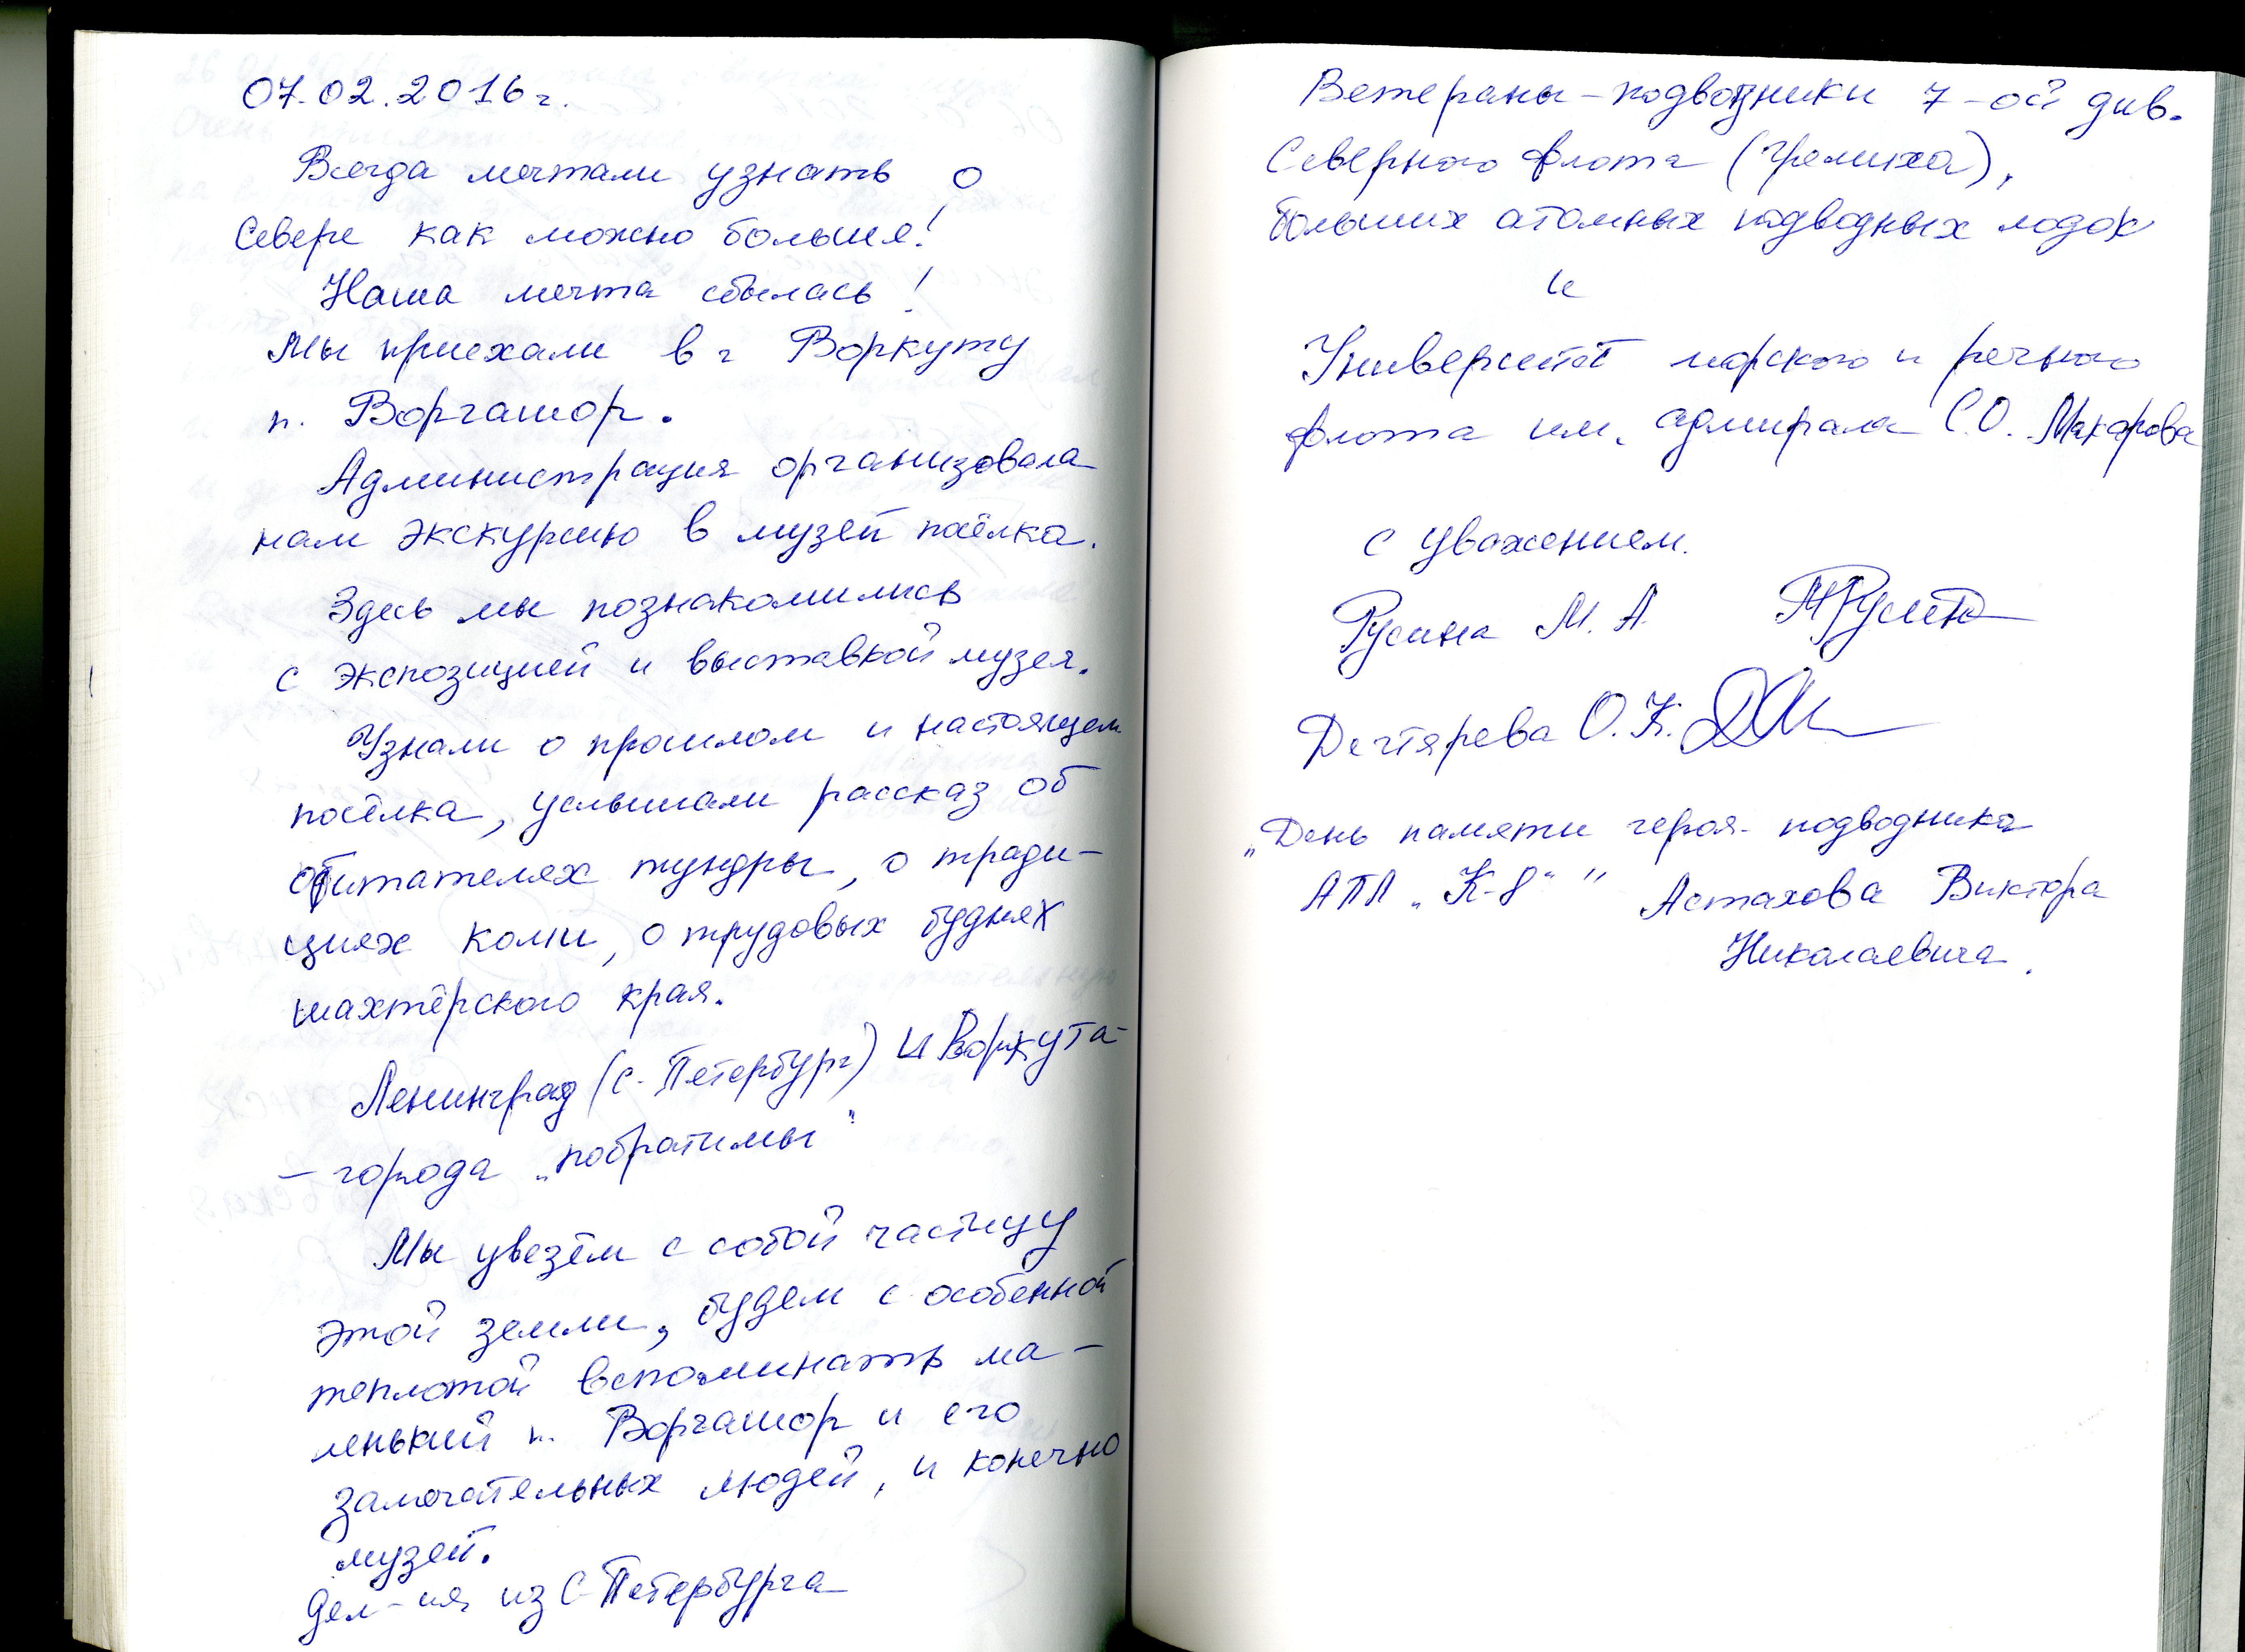 07.02.2016 г.
Всегда мечтали узнать о
Севере как можно больше!
Наша мечта сбылась!
Мы приехали в г Воркуту
п. Воргашор.
Администрация организовала
нам экскурсию в музей посёлка.
Здесь мы познакомились
с экспозицией и выставкой музея.
Узнали о прошлом и настоящем
посёлка, услышали рассказ об
обитателях тундры, о тради-
циях коми, о трудовых буднях
шахтёрского края.
Ленинград (С-Петербург) и Воркута-
- города „побратимы"
Мы увезём с собой частицу
этой земли, будем с особенной
теплотой вспоминать ма-
ленький п. Воргашор и его
замечательных людей, и конечно
музей.
Дел-ия из С-Петербурга
Ветераны-подводники 7-ой див.
Северного флота (Гремиха),
больших атомных подводных лодок
и
Университет морского и речного
флота им. адмирала С.О. Макарова
С уважением.
Русина М. А.
Дегтярева О. К.
„День памяти героя-подводника
АПЛ „К-8" " Астахова Виктора
Николаевича.